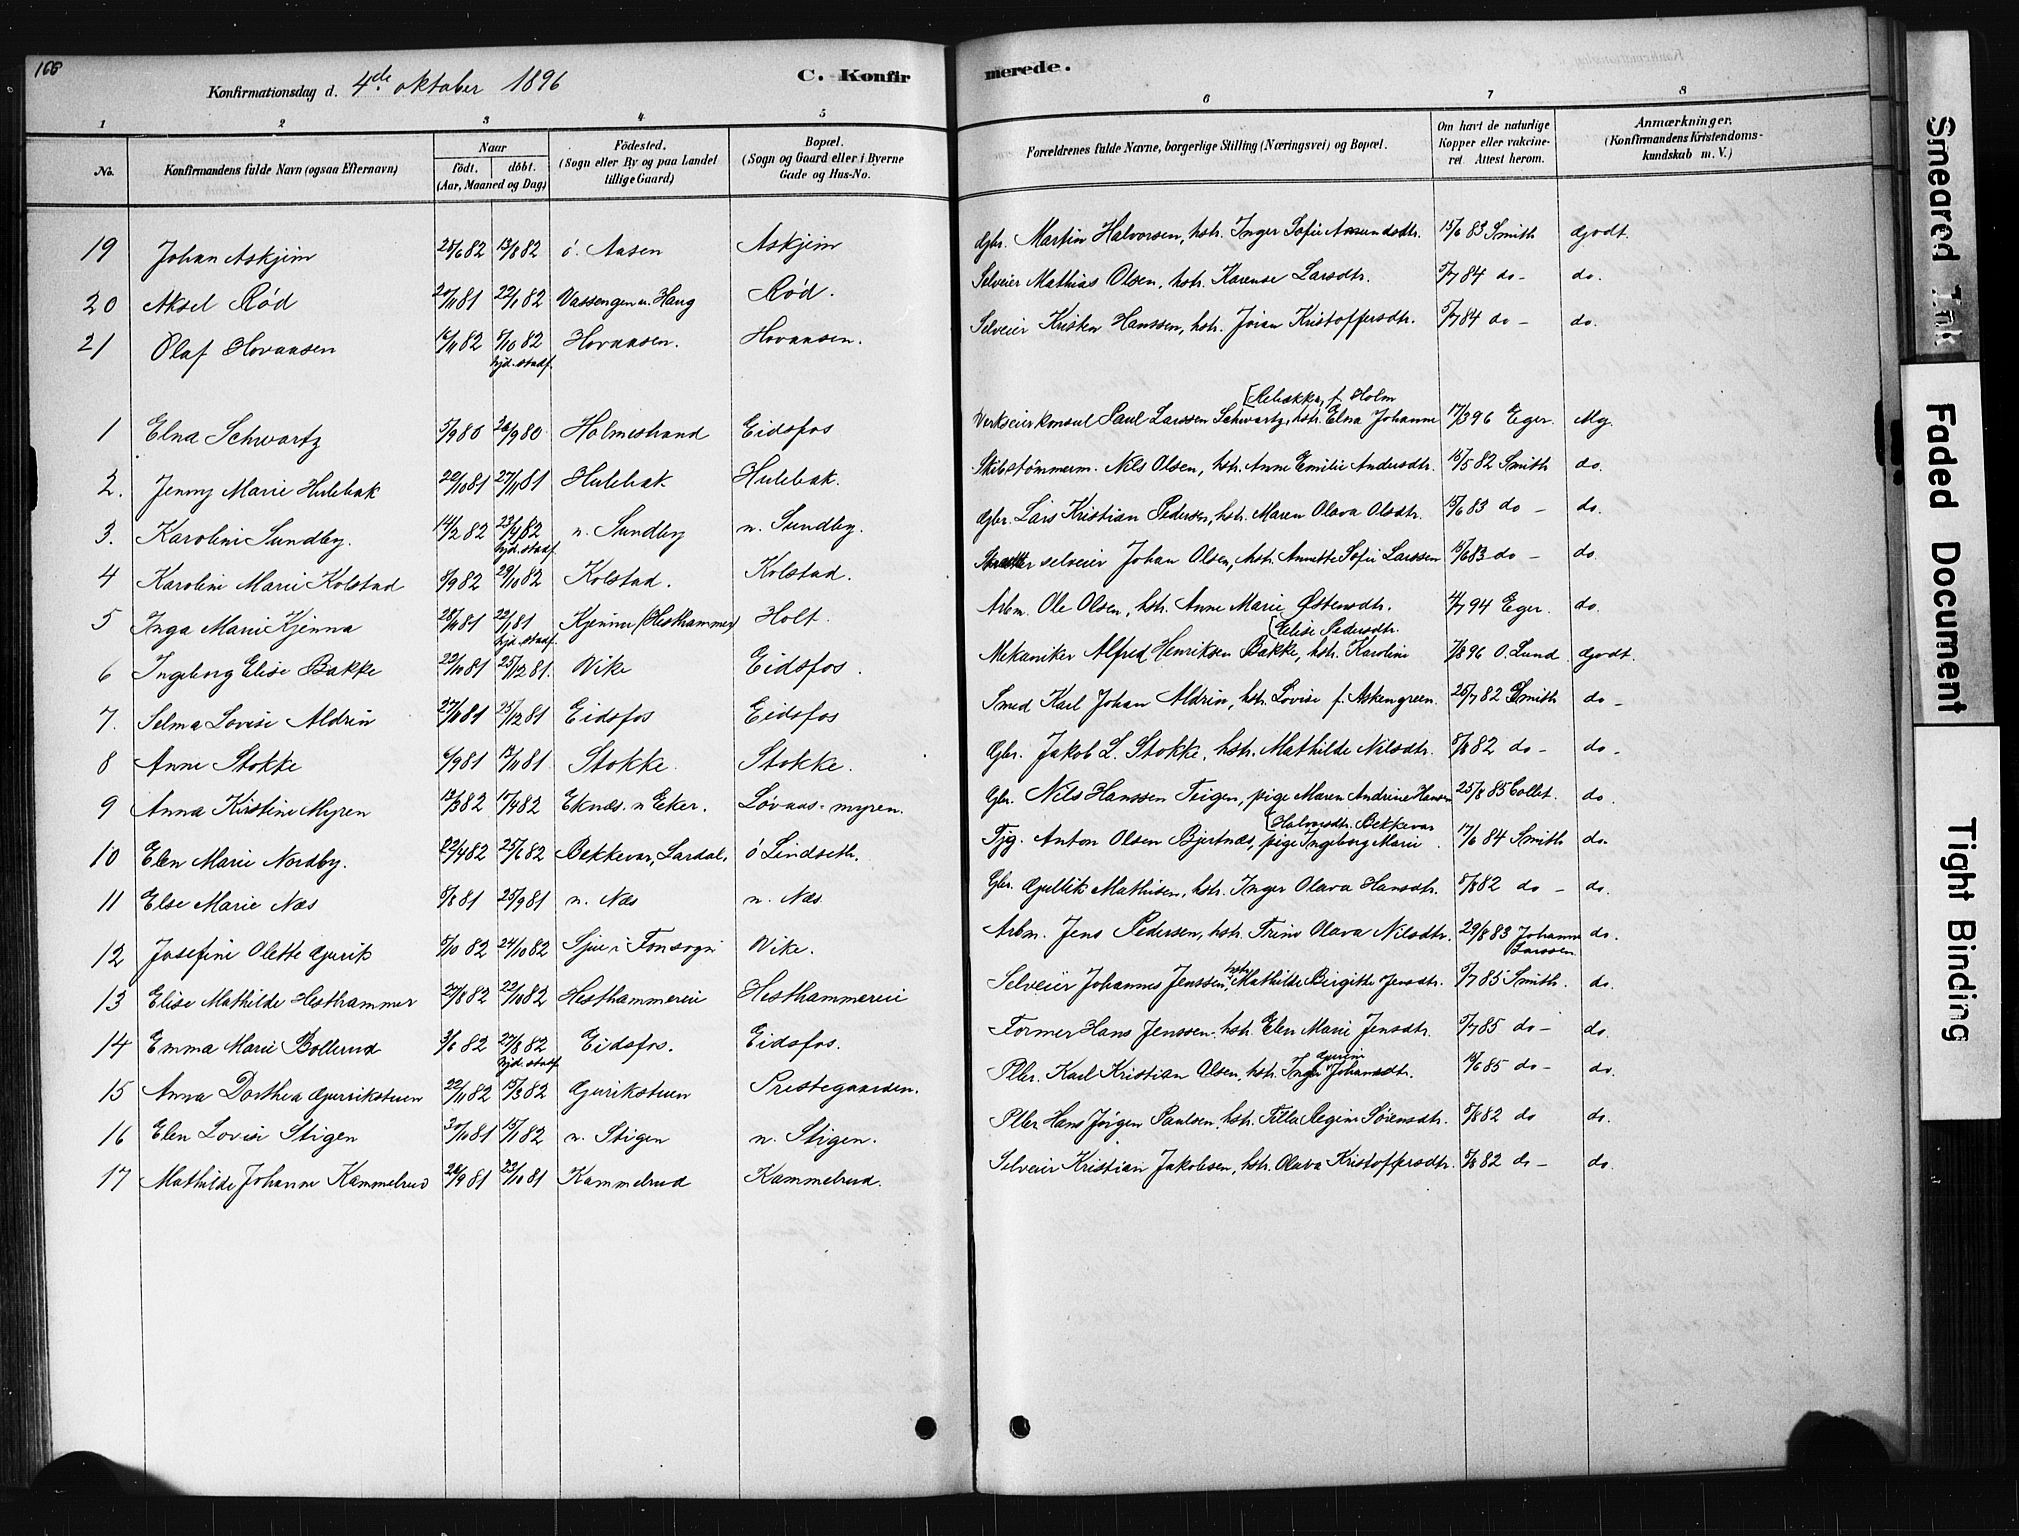 166
Konfirmationsdag d. 4de oktober 1896
C. Konfirmerede.
1 2 3 4 5 6 7 8
No. | Konfirmandens fulde Navn (ogsaa Efternavn) | Naar födt. döbt. (Aar, Maaned og Dag) | Födested. (Sogn eller By og paa Landet tillige Gaard) | Bopæl. (Sogn og Gaard eller i Byerne Gade og Hus-No. | Forældrenes fulde Navne, borgerlige Stilling (Næringsvei) og Bopæl. | Om havt de naturlige Kopper eller vakcineret. Attest herom. | Anmærkninger. (Konfirmandens Kristendomskundskab m. V.)
19 Johan Askjem 25/6 82 13/8 82 ö. Aasen Askjem Gbr. Martin Halvorsen, hstr. Inger Sofie Amundsdtr. 15/6 83 Smith Godt.
20 Aksel Röd 20/11 81 22/1 82 Vassengen n. Haug Röd. Selveier Mathias Olsen, hstr. Karense Larsdtr. 5/7 84 do - do.
21 Olaf Hovaasen 82 8/10 82 hjd. stadf. Hovaasen. Hovaasen. Selveier Kristen Hanssen, hstr. Joran Kristoffersdtr. 5/7 84 do - do.
1 Elna Schwartz 5/9 80 26/9 80 Holmestrand Eidsfos Verkseier konsul Paul Larssen Schwartz, hstr. Elna Johanne [Rebekka, f. Holm 17/3 96 Eger. Mg.
2. Jenny Marie Hulebak 22/10 81 27/11 81 Hulebak Hulebak. Skibstømmerm. Nils Olsen, hstr. Anne Emilie Andersdtr. 15/5 82 Smith do.
3. Karoline Sundby. 14/2 82 23/4 82 hjd. stadf. n. Sundby n. Sundby. Gbr. Lars Kristian Pedersen, hstr. Maren Olava Olsdtr. 15/6 83 do - do.
4 Karoline Marie Kolstad 8/9 82 29/10 82 Kolstad. Kolstad. selveier Johan Olsen, hstr. Annette Sofie Larssen 15/6 83 do - do.
5 Inga Marie Kjenna 81 81 hjd. stadf. Kjenna (Hesthammer) Holt. Arbm. Ole Olsen, hstr. Anne Marie Østensdtr. 4/7 94 Eger. do.
6 Ingeborg Elise Bakke 22/10 81 25/12 81. Vike Eidsfos. Mekaniker Alfred Henriksen Bakke, hstr. Karoline [Elise Pedersdtr. 7/8 96 O. Lund Godt.
7. Selma Lovise Aldrin 27/10 81 25/12 81 Eidsfos Eidsfos Smed Karl Johan Aldrin, hstr. Lovise f. Askengreen. 25/7 82 Smith do -
8 Anne Stokke 6/9 81 13/11 81. Stokke. Stokke. Gbr. Jakob L. Stokke, hstr. Mathilde Nilsdtr. 8/8 82 do - do -
9 Anna Kirstine Myren 12/3 82 17/4 82 Eknæs. n Eker. Løvaas-myren. Gbr. Nils Hanssen Teigen, pige Maren Andrine Hansen 25/8 85 Collet. do.
10 Elen Marie Nordby. 22/4 82 25/6 82 Bekkevar, Lardal. ö Lindseth. Tjg. Anton Olsen Bjertnæs, pige Ingeborg Marie [Halvorsdtr. Bekkevar 17/6 84 Smith do.
11 Else Marie Næs 8/8 81 25/9 81 n. Næs n. Næs. Gbr. Gullik Mathisen, hstr. Inger Olava Hansdtr. 8/8 82 do - do.
12 Josefine Olette Gjerik 8/10 82 24/10 82 Sjue i Fonsogn Vike. Arbm. Jens Pedersen, hstr. Trine Olava Nilsdtr. 29/8 83 Johanne Larssen do.
13 Elise Mathilde Hesthammer 27/8 82 22/10 82 Hesthammereie Hesthammereie Selveier Johannes Jenssen, hstr. Mathilde Birgitte Jensdtr. 5/7 85 Smith. do.
14 Emma Marie Bollerud 3/6 82 27/8 82 hjd. stadf. Eidsfos. Eidsfos. Former Hans Jenssen. hstr. Elen Marie Jensdtr. 5/7 85 do - do.
15 Anna Dorthea Gjerikstuen 22/1 82 15/3 82 Gjerikstuen Prestegaarden. Pller. Karl Kristian Olsen, hstr. Inger Johansdtr. 16/6 85 do - do.
16 Elen Lovise Stigen 30/10 81 15/1 82 n. Stigen n. Stigen. Pller Hans Jörgen Paulsen. hstr. Tilla Regine Sörensdtr. 8/8 82 do do.
17 Mathilde Johanne Kammelrud 28/9 81 23/10 81 Kammelrud Kammelrud. Selveier Kristian Jakobsen, hstr. Olava Kristoffersdtr. 8/8 82 do - do.
Smeared Ink
Faded Document
Tight Binding